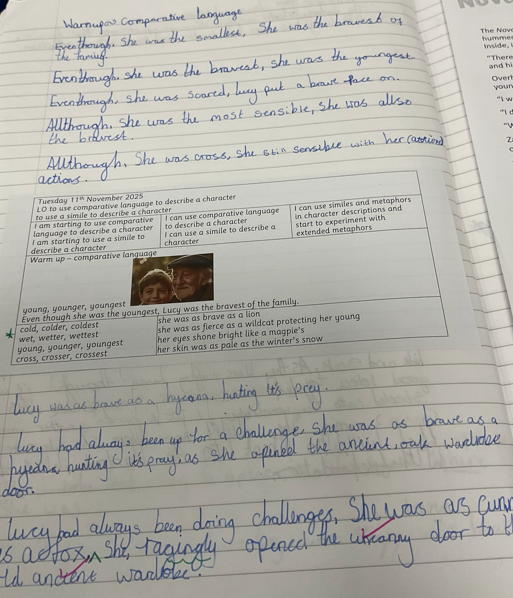 Warmup Comparative language
Eventhough, She was the smallest, She was the bravest of
the family.
Eventhough, she was the bravest, she was the youngest
Eventhough, she was scared, lucy put a brave face on.
Allthough, She was the most sensible, She was allso
the bravest.
Allthough, She was cross, she still sensible with her
actions.
Tuesday 11th November 2025
LO to use comparative language to describe a character
to use a simile to describe a character
I am starting to use comparative
language to describe a character
I am starting to use a simile to
describe a character
I can use comparative language
to describe a character
I can use a simile to describe a
character
I can use similes and metaphors
in character descriptions and
start to experiment with
extended metaphors
Warm up – comparative language
young, younger, youngest
Even though she was the youngest, Lucy was the bravest of the family.
cold, colder, coldest
wet, wetter, wettest
young, younger, youngest
cross, crosser, crossest
she was as brave as a lion
she was as fierce as a wildcat protecting her young
her eyes shone bright like a magpie's
her skin was as pale as the winter's snow
lucy was as brave as a hyeana, hunting it's prey.
lucy had always been up for a challenge, She was as brave as a
hyeana, hunting it's pray, as she opened the ancint, oak wardrobe
door.
lucy had always been doing challenges, She was as
as a fox, she, ragingly opened the uncanny door to
ancient wardobe.
The Nove
hummer
Inside, l
"There
and hi
Overh
youn
"I w
"I d
"W